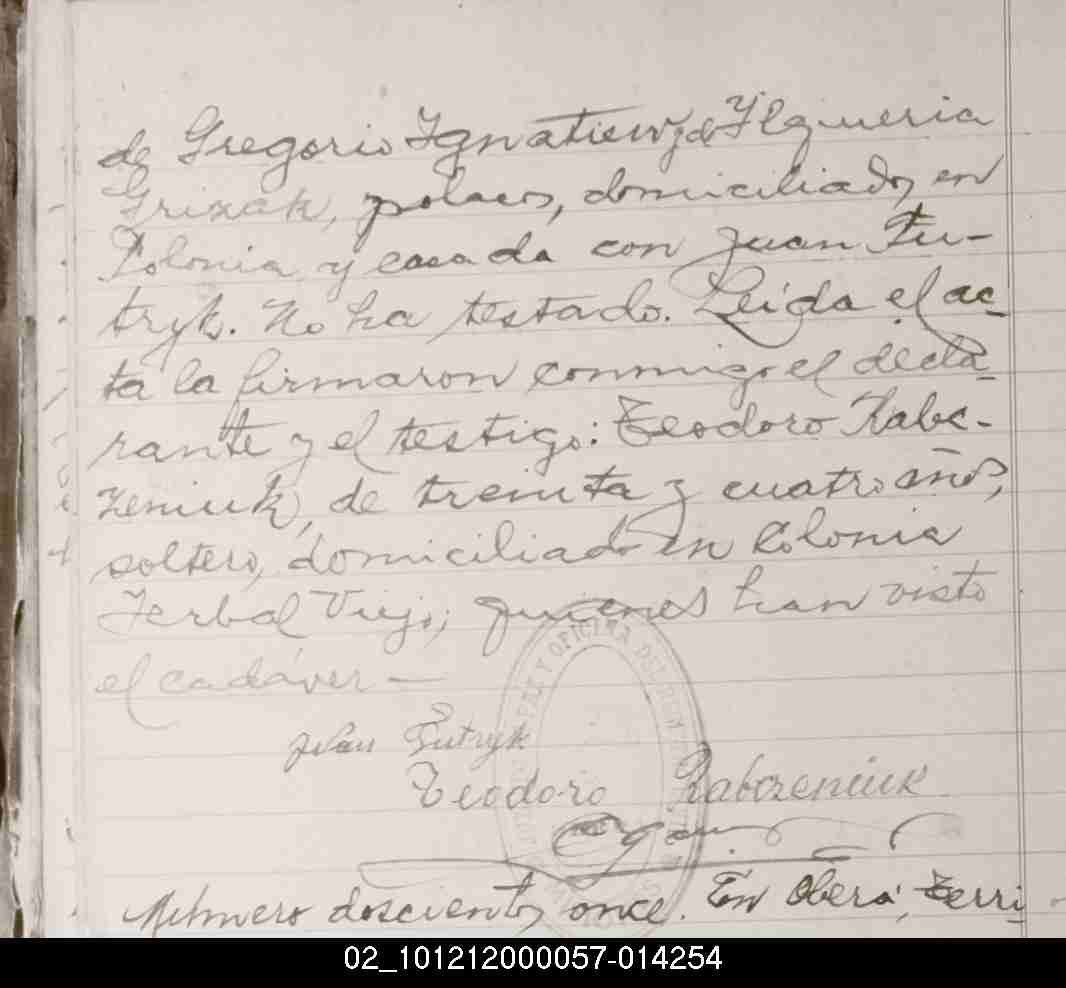 de Gregorio Ignatiew y de Ylqueria
Grixak, polacos, domiciliados en
Polonia y casada con Juan Fu-
tryk. No ha testado. Leída el ac-
ta la firmaron conmigo el decla-
rante y el testigo: Teodoro Rabc-
zeniuk, de treinta y cuatro años,
soltero, domiciliado en Colonia
Yerbal Viejo, quienes han visto
el cadáver —
Futryk
Teodoro Rabczeniuk
PAZ Y OFICINA DEL
Número doscientos once. En Oberá, Terri-
02_101212000057-014254